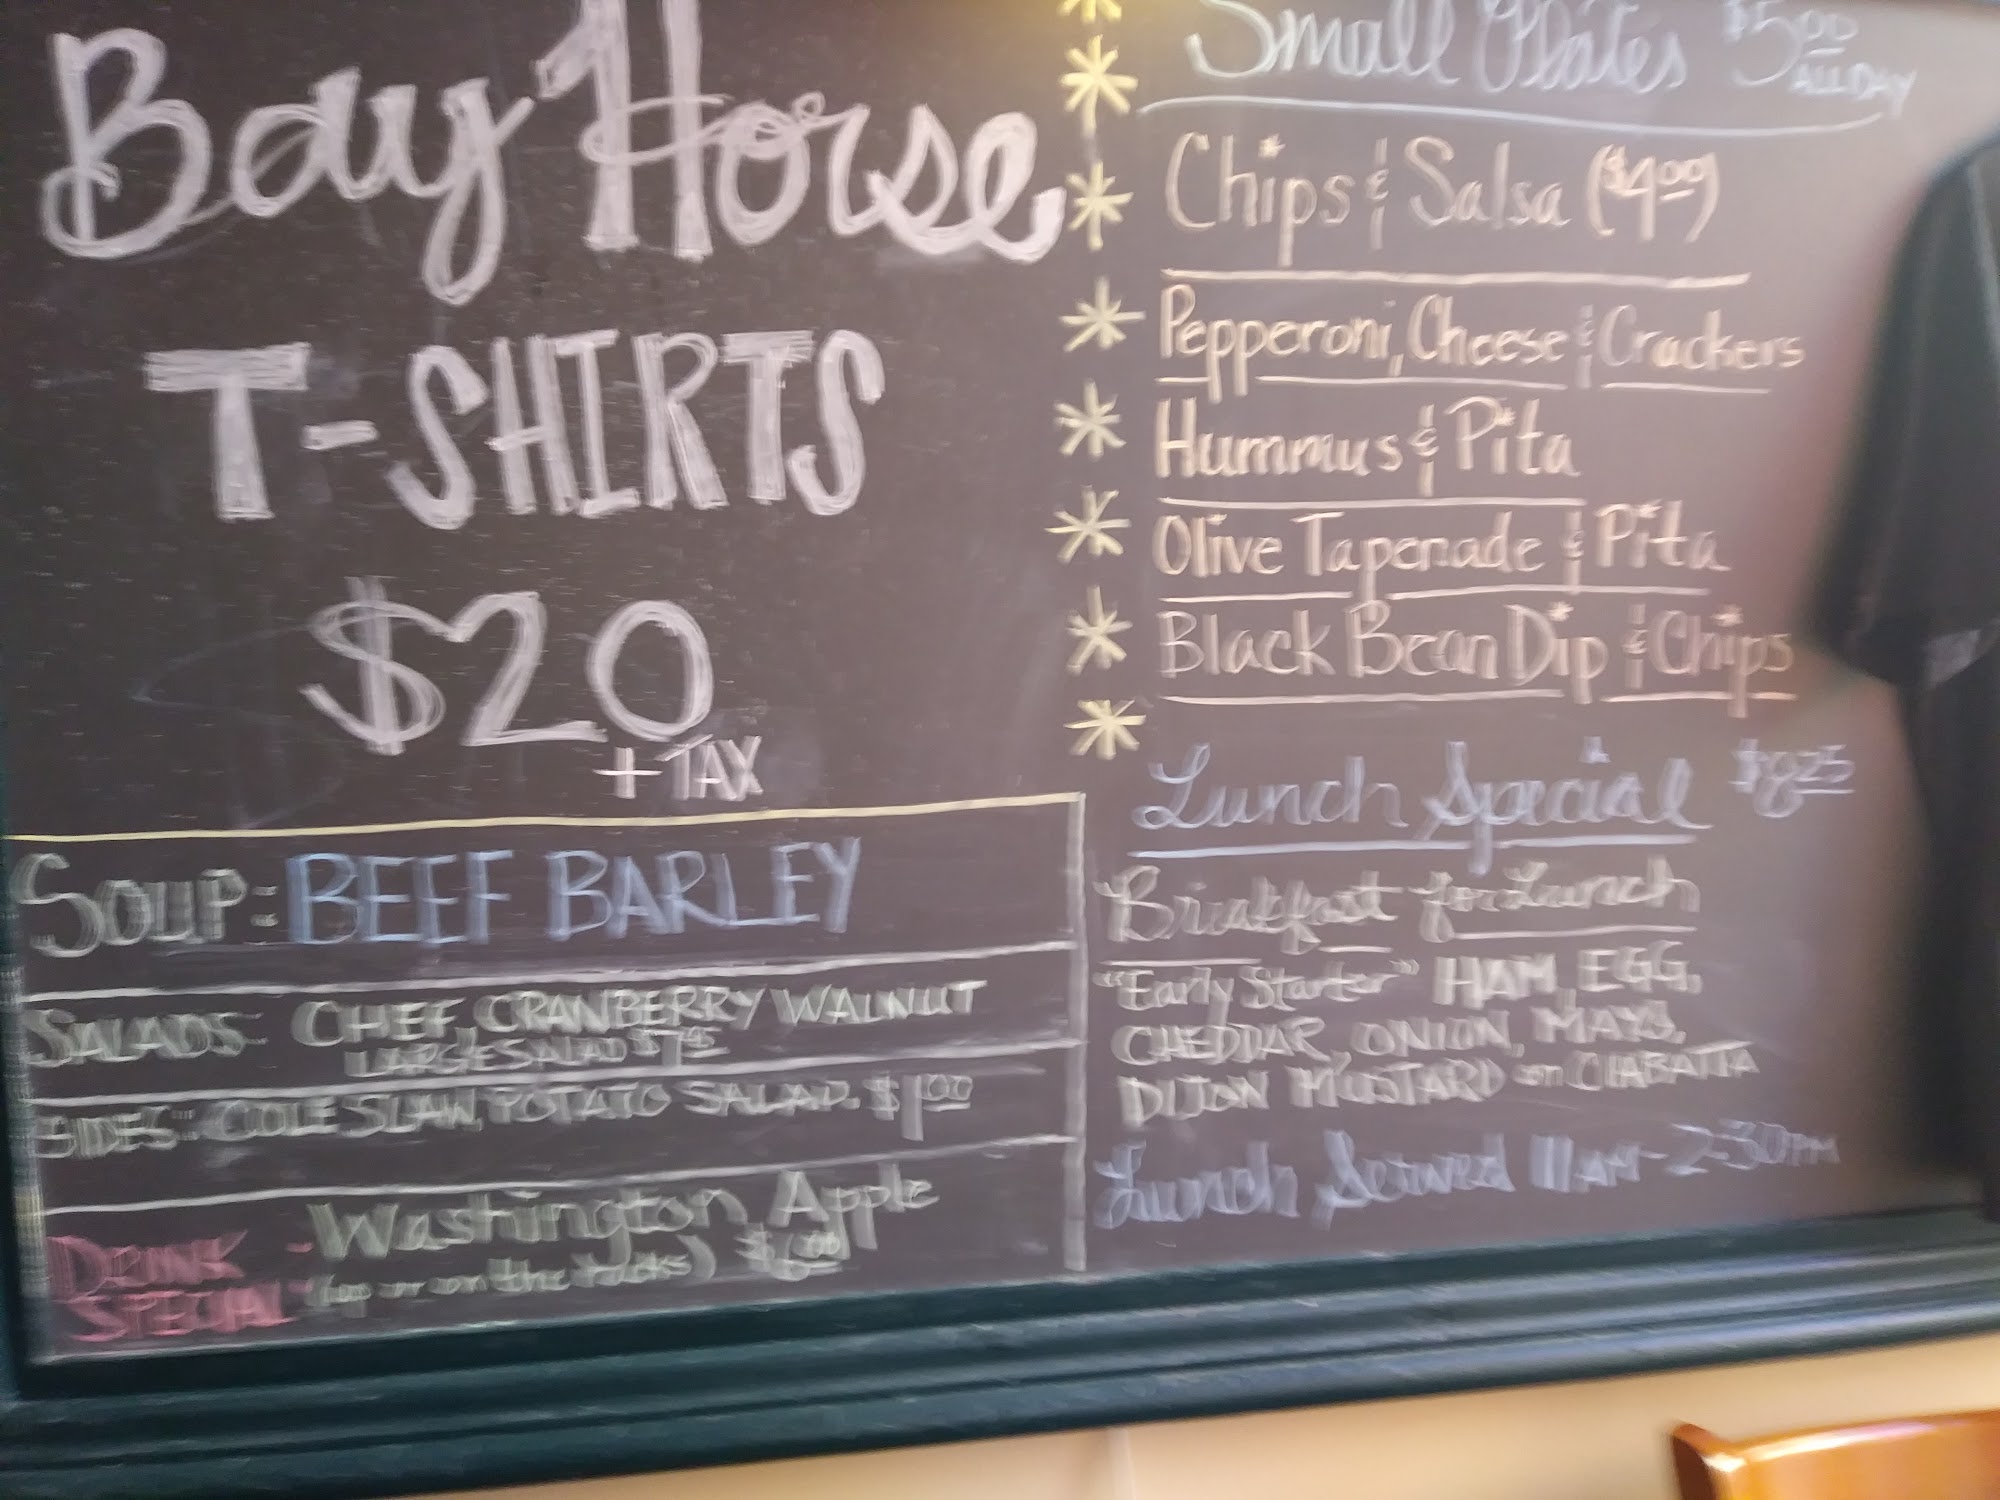 Bay Horse
T-SHIRTS
$20
+ TAX
SOUP: BEEF BARLEY
SALADS: CHEF, CRANBERRY WALNUT
LARGE SALAD
SIDES: COLE SLAW, POTATO SALAD. $1.00
DRINK SPECIAL - Washington Apple
(up or on the rocks) $6.00
Small Plates $5.00
ALL DAY
Chips & Salsa ($4.00)
Pepperoni, Cheese & Crackers
Hummus & Pita
Olive Tapenade & Pita
Black Bean Dip & Chips
Lunch Special $8.25
Breakfast for Lunch
"Early Starter" HAM, EGG,
CHEDDAR, ONION, MAYO,
DIJON MUSTARD on CIABATTA
Lunch Served 11AM-2:30PM